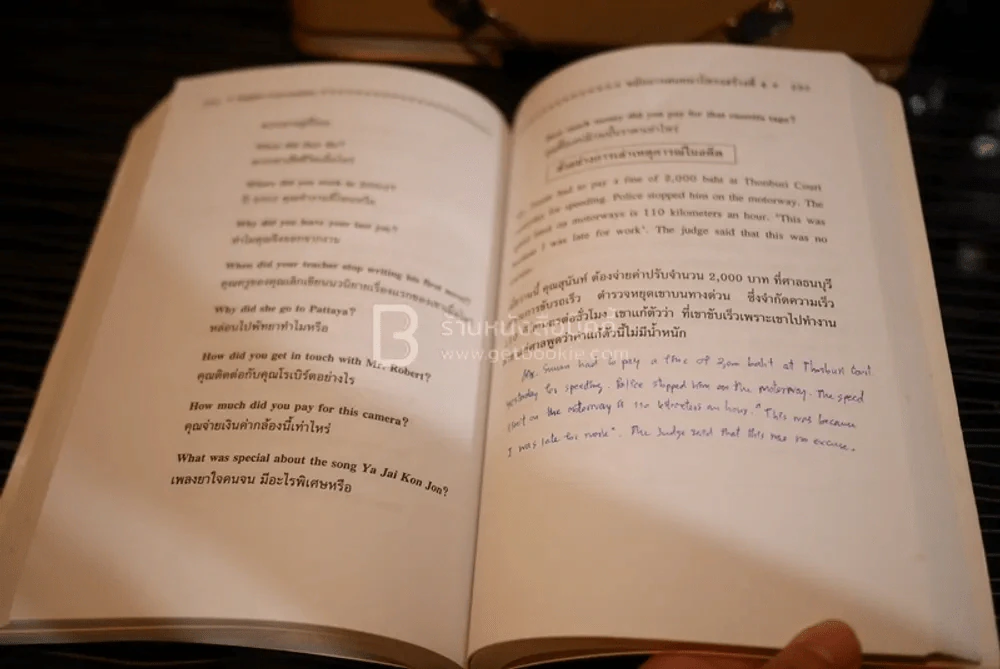 When did she die?
Where did you work in
Why did you leave your last job?
ทำไมคุณถึงออกจากงาน
When did your teacher stop writing his first novel?
คุณครูของคุณเลิกเขียนนวนิยายเรื่องแรกของเขาเมื่อไหร่
Why did she go to Pattaya?
หล่อนไปพัทยาทำไมหรือ
How did you get in touch with Mr. Robert?
คุณติดต่อกับคุณโรเบิร์ตอย่างไร
How much did you pay for this camera?
คุณจ่ายเงินค่ากล้องนี้เท่าไหร่
What was special about the song Ya Jai Kon Jon?
เพลงยาใจคนจน มีอะไรพิเศษหรือ
How much money did you pay for that cassette tape?
ตัวอย่างการเล่าเหตุการณ์ในอดีต
had to pay a fine of 2,000 baht at Thonburi Court
for speeding. Police stopped him on the motorway. The
limit on motorways is 110 kilometers an hour. "This was
I was late for work". The judge said that this was no
นี้ คุณสุนันท์ ต้องจ่ายค่าปรับจำนวน 2,000 บาท ที่ศาลธนบุรี
การขับรถเร็ว ตำรวจหยุดเขาบนทางด่วน ซึ่งจำกัดความเร็ว
ต่อชั่วโมง เขาแก้ตัวว่า ที่เขาขับเร็วเพราะเขาไปทำงาน
ศาลพูดว่าคำแก้ตัวนี้ไม่มีน้ำหนัก
Mr. Sunan had to pay a fine of 2,000 baht at Thonburi Court
yesterday for speeding. Police stopped him on the motorway. The speed
limit on the motorway is 110 kilometers an hour. "This was because
I was late for work". The Judge said that this was no excuse.
B ร้านหนังสือบุ๊คกี้
www.getbookie.com